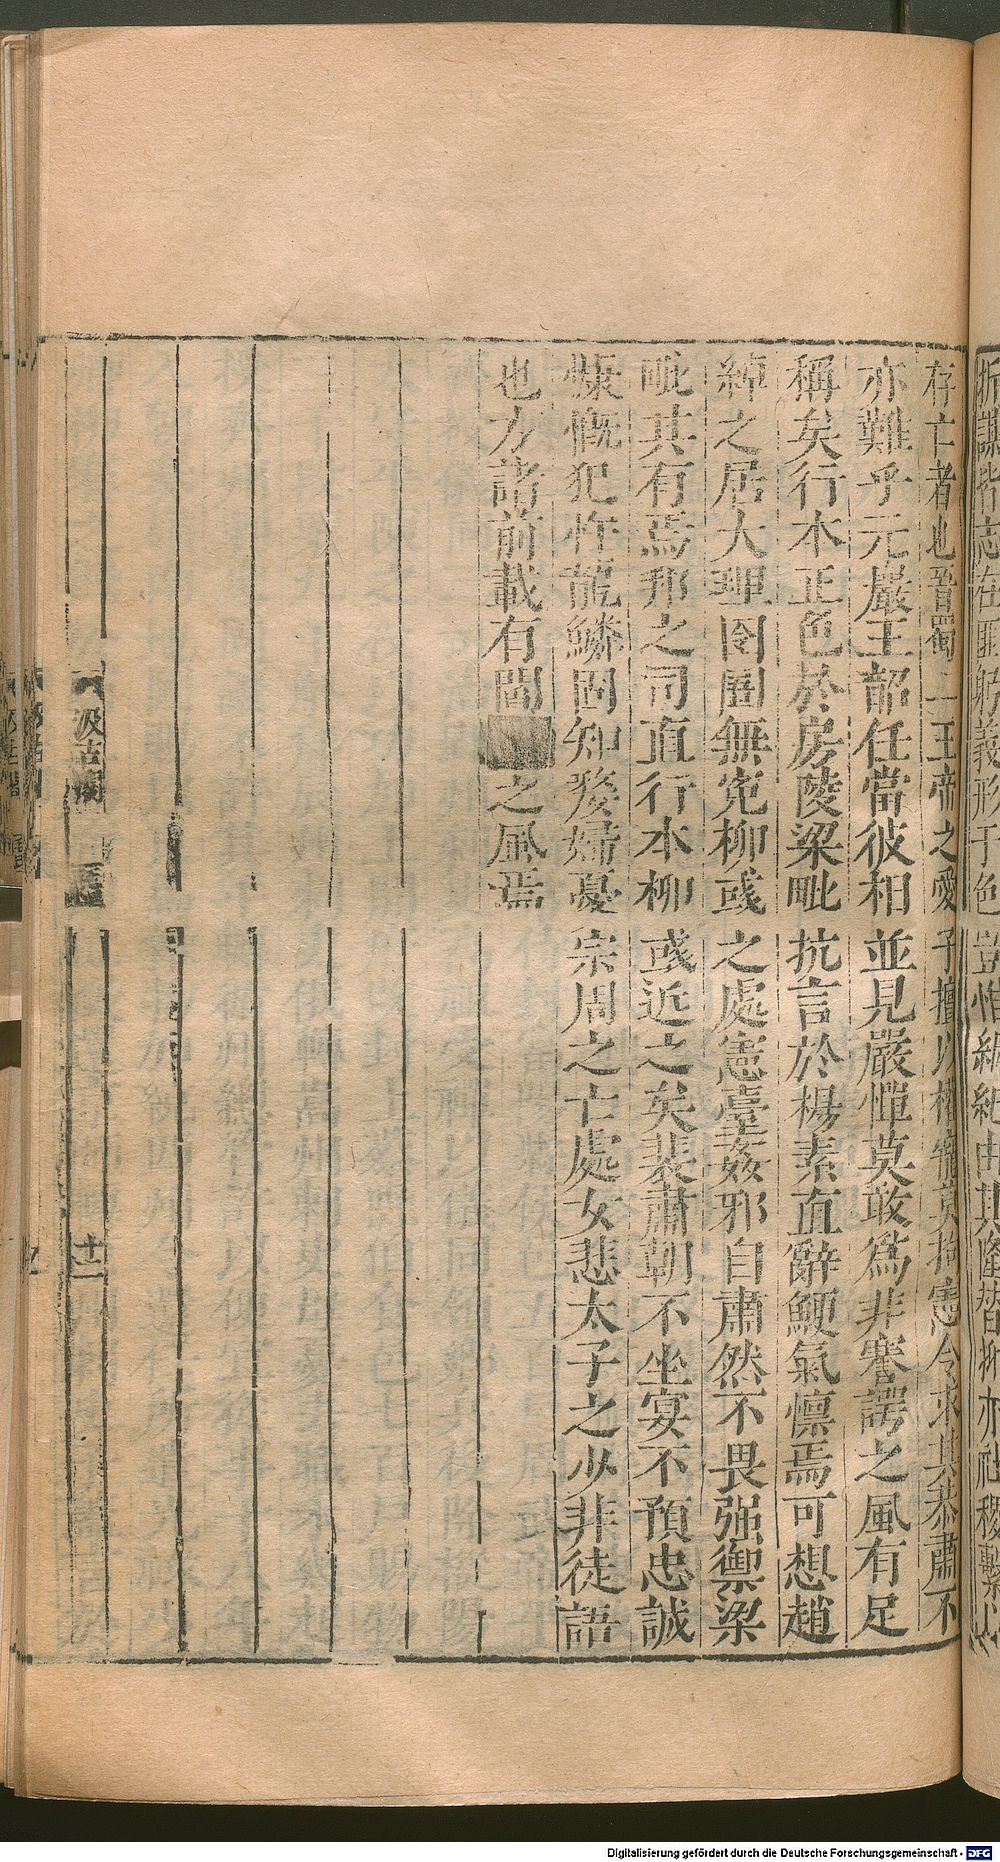 折謀皆志在匪躬義形于色豈惟綱紀由其隆替抑亦社稷繫以
存亡者也晉蜀二王帝之愛子擅以權寵莫拘憲令求其恭肅不
亦難乎元嚴王韶任當彼相並見嚴憚莫敢爲非謇諤之風有足
稱矣行本正色於房陵梁毗抗言於楊素直辭鯁氣懍焉可想趙
綽之居大理囹圄無寃柳彧之處憲臺姦邪自肅然不畏强禦梁
毗其有焉邦之司直行本柳彧近之矣裴肅朝不坐宴不預忠誠
慷慨犯忤龍鱗固知嫠婦憂宗周之亡處女悲太子之少非徒語
也方諸前載有閻之風焉
汲古閣
十二
Digitalisierung gefördert durch die Deutsche Forschungsgemeinschaft - DFG